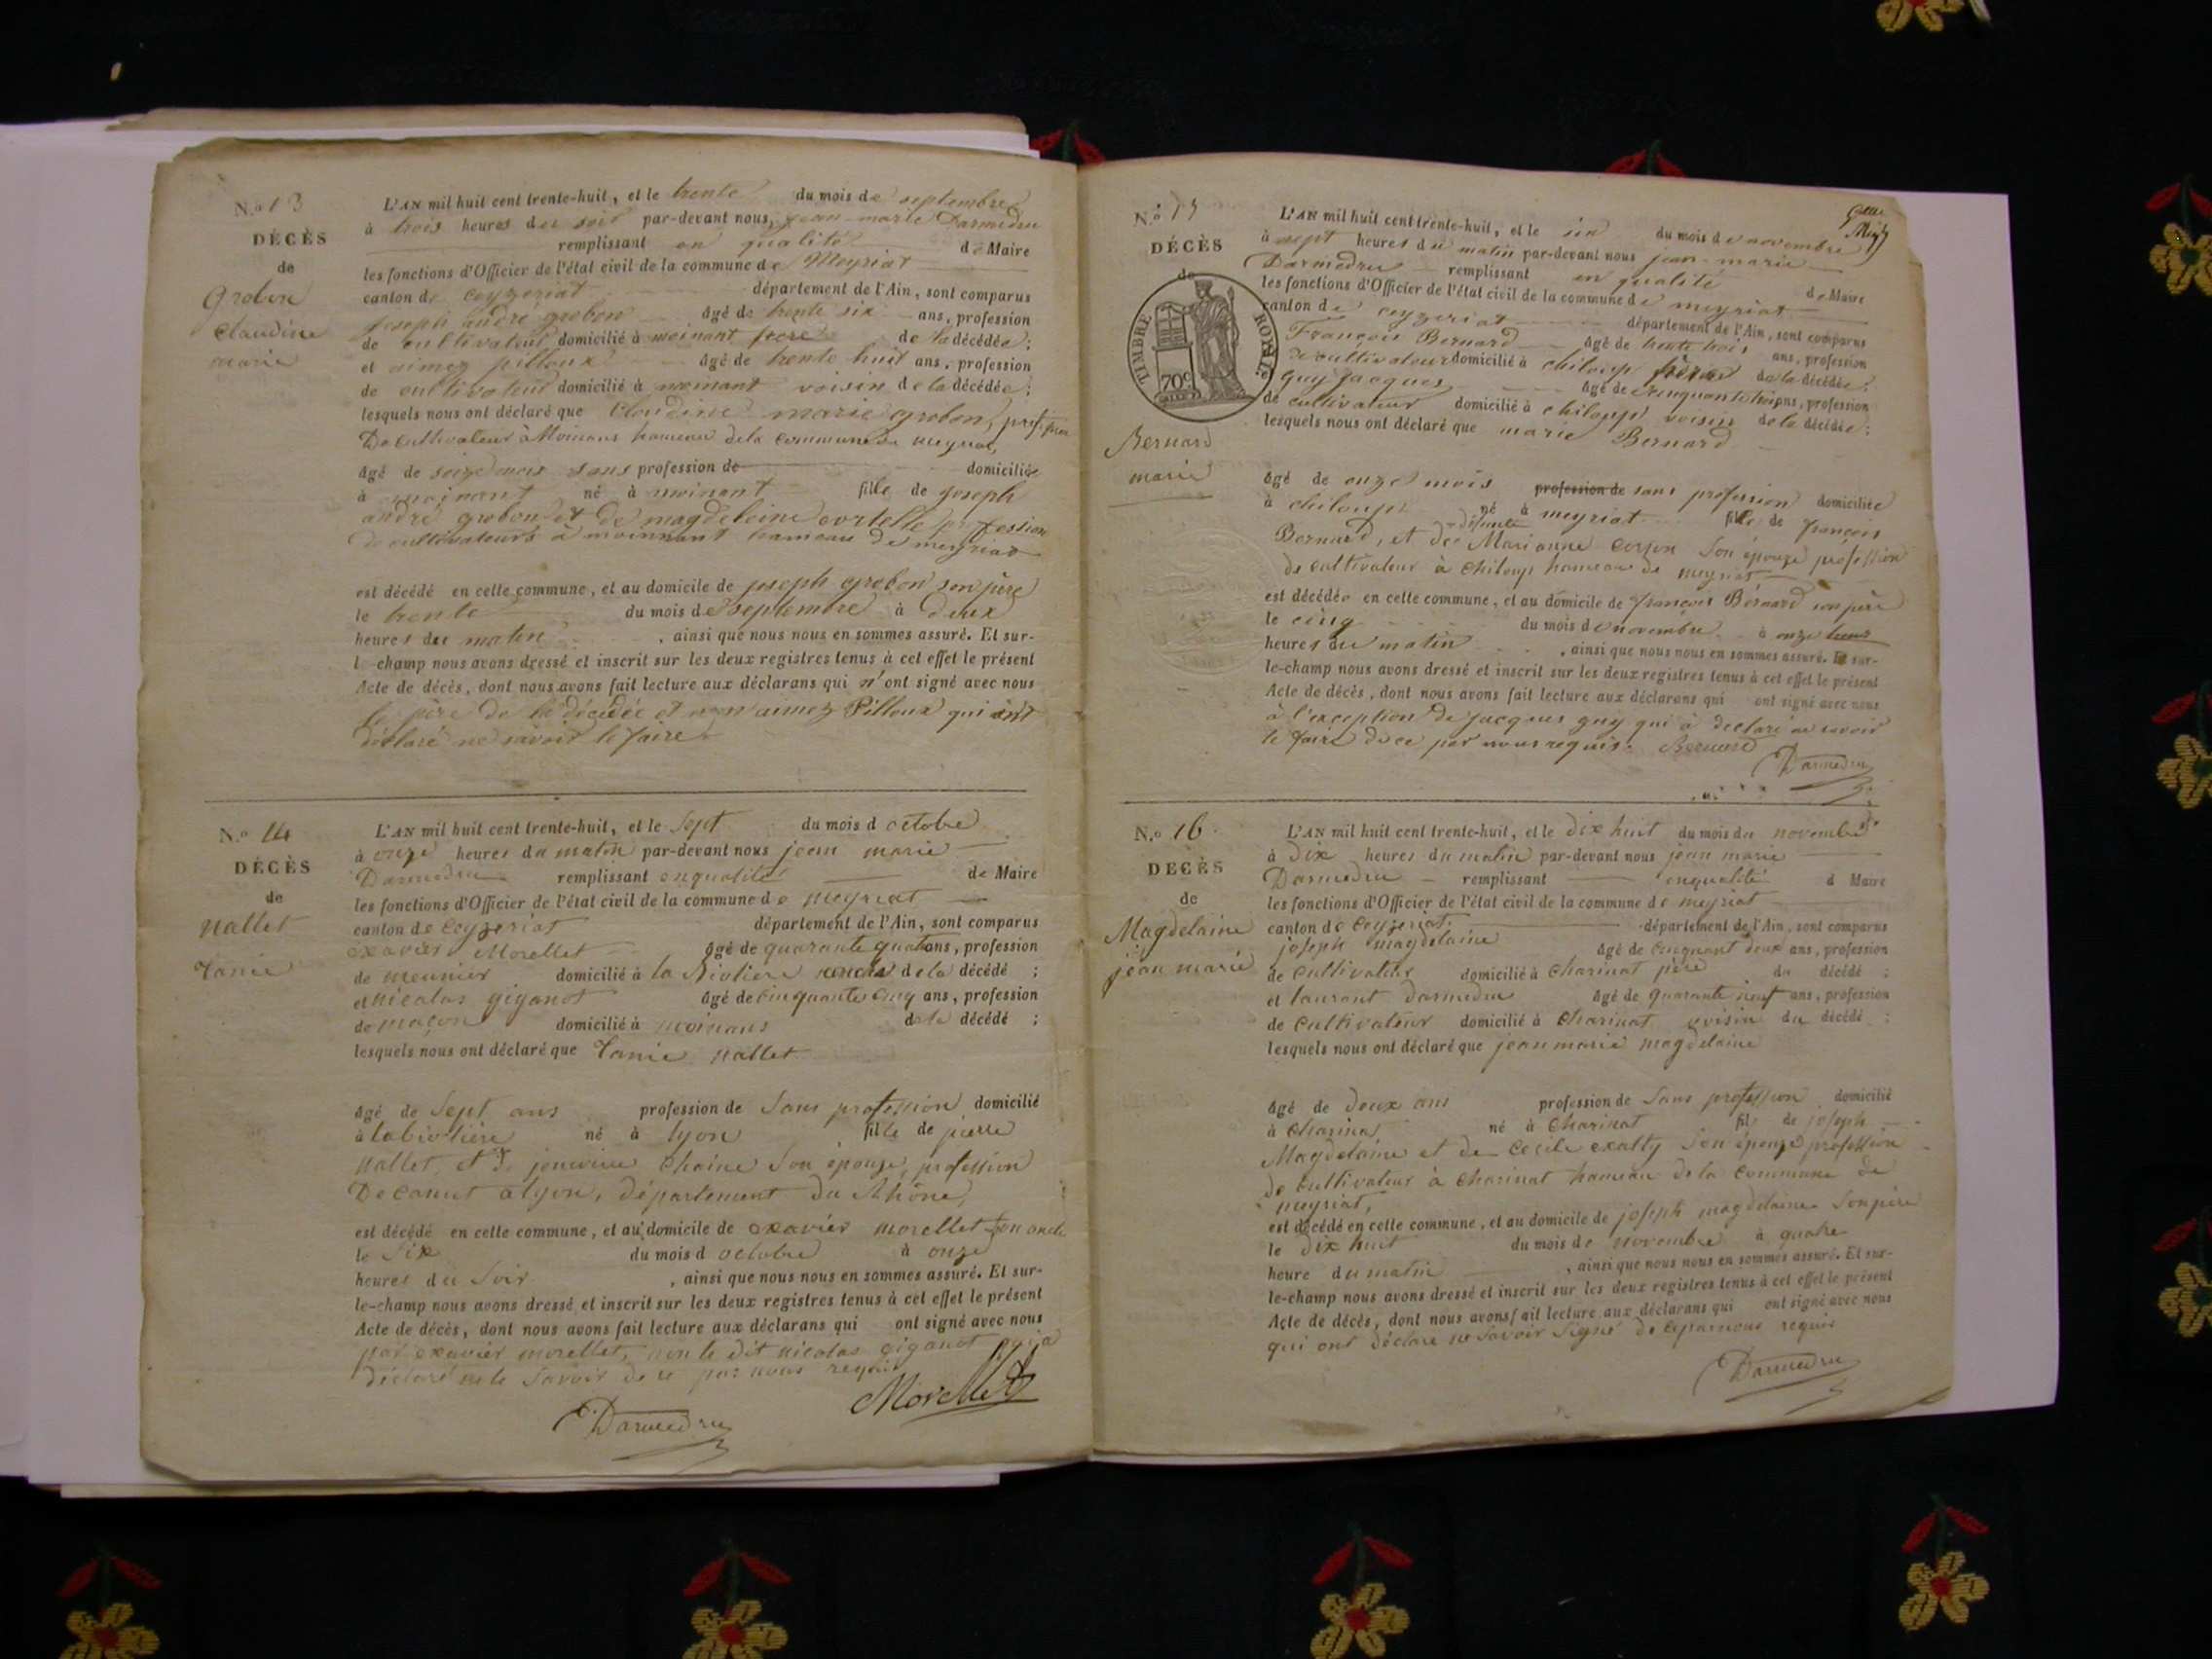 N.º 13
DÉCÈS
de
Grobon
Claudine
marie
L'AN mil huit cent trente-huit, et le trente du mois de septembre
à trois heures du soir par-devant nous, jean-marie Darmedru
remplissant en qualité de Maire
les fonctions d'Officier de l'état civil de la commune de Meyriat
canton de ceyzeriat département de l'Ain, sont comparus
joseph andré grobon âgé de trente six ans, profession
de cultivateur domicilié à moinant père de la décédée ;
et aimez pilloux âgé de trente huit ans, profession
de cultivateur domicilié à moinant voisin de la décédée ;
lesquels nous ont déclaré que Claudine marie grobon,
De cultivateur à Moinans hameau de la commune de meyriat,
âgé de seize mois sans profession de domiciliée
à moinant né à moinant fille de joseph
andré grobon et de magdeleine profession
de cultivateurs à moinnant hameau de meyriat
est décédé en cette commune, et au domicile de joseph grobon son père
le trente du mois de septembre à deux
heures du matin, ainsi que nous nous en sommes assuré. Et sur-
le-champ nous avons dressé et inscrit sur les deux registres tenus à cet effet le présent
Acte de décès, dont nous avons fait lecture aux déclarans qui n'ont signé avec nous
le père de la décédée et aimez Pilloux qui ont
déclaré ne savoir le faire
N.º 14
DÉCÈS
de
Nallet
Tanie
L'AN mil huit cent trente-huit, et le Sept du mois d octobre
à onze heures du matin par-devant nous jean marie
Darmedru remplissant enqualité de Maire
les fonctions d'Officier de l'état civil de la commune de meyriat
canton de Ceyzeriat département de l'Ain, sont comparus
exavier Morellet âgé de quarante quatre ans, profession
de meunier domicilié à la Biolière oncle de la décédé ;
et nicolas giganot âgé de cinquante cinq ans, profession
de maçon domicilié à moinans de la décédé ;
lesquels nous ont déclaré que Tanie Nallet
âgé de Sept ans profession de Sans profession domicilié
à labiolière né à lyon fille de pierre
Nallet, et de Chaine Son épouse, profession
De canut alyon, département du Rhône,
est décédé en cette commune, et au domicile de exavier morellet Son oncle
le Six du mois d octobre à onze
heures du Soir, ainsi que nous nous en sommes assuré. Et sur-
le-champ nous avons dressé et inscrit sur les deux registres tenus à cet effet le présent
Acte de décès, dont nous avons fait lecture aux déclarans qui ont signé avec nous
par exavier morellet, non le dit nicolas giganot qui a
déclaré ne le Savoir de ce par nous requis
Morellet
Darmedru
N.º 15
DÉCÈS
de
TIMBRE ROYAL
70c
Bernard
marie
L'AN mil huit cent trente-huit, et le six du mois de novembre
à sept heures du matin par-devant nous jean-marie
Darmedru remplissant en qualité de Maire
les fonctions d'Officier de l'état civil de la commune de meyriat
canton de ceyzeriat département de l'Ain, sont comparus
François Bernard âgé de trente trois ans, profession
de cultivateur domicilié à chiloup père de la décédée ;
guy jacques âgé de cinquante trois ans, profession
de cultivateur domicilié à chiloup voisin de la décédée ;
lesquels nous ont déclaré que marie Bernard
âgé de onze mois profession de sans profession domiciliée
à chiloup né à meyriat fille de françois
Bernard, et de défunte Marianne Son épouse profession
de cultivateur à chiloup hameau de meyriat
est décédée en cette commune, et au domicile de françois Bernard son père
le cinq du mois de novembre à onze heures
heures du matin, ainsi que nous nous en sommes assuré. Et sur-
le-champ nous avons dressé et inscrit sur les deux registres tenus à cet effet le présent
Acte de décès, dont nous avons fait lecture aux déclarans qui ont signé avec nous
à l'exception de jacques guy qui à déclaré ne savoir
le faire de ce par nous requis. Bernard
Darmedru
N.º 16
DÉCÈS
de
Magdelaine
jean marie
L'AN mil huit cent trente-huit, et le Dix huit du mois de novembre
à Dix heures du matin par-devant nous jean marie
Darmedru remplissant enqualité d Maire
les fonctions d'Officier de l'état civil de la commune de meyriat
canton de Ceyzeriat département de l'Ain, sont comparus
joseph magdelaine âgé de cinquant deux ans, profession
de Cultivateur domicilié à Charinat père du décédé ;
et laurent Darmedru âgé de quarante neuf ans, profession
de Cultivateur domicilié à Charinat voisin du décédé ;
lesquels nous ont déclaré que jean marie magdelaine
âgé de Deux ans profession de Sans profession domicilié
à Charinat né à Charinat fils de joseph
Magdelaine et de Cecile Son épouze profession
de Cultivateur à Charinat hameau de la Commune de
meyriat,
est décédé en cette commune, et au domicile de joseph magdelaine Son père
le Dix huit du mois de novembre à quatre
heure du matin, ainsi que nous nous en sommes assuré. Et sur-
le-champ nous avons dressé et inscrit sur les deux registres tenus à cet effet le présent
Acte de décès, dont nous avons fait lecture aux déclarans qui ont signé avec nous
qui ont déclaré ne Savoir Signé de ceparnous requis
Darmedru